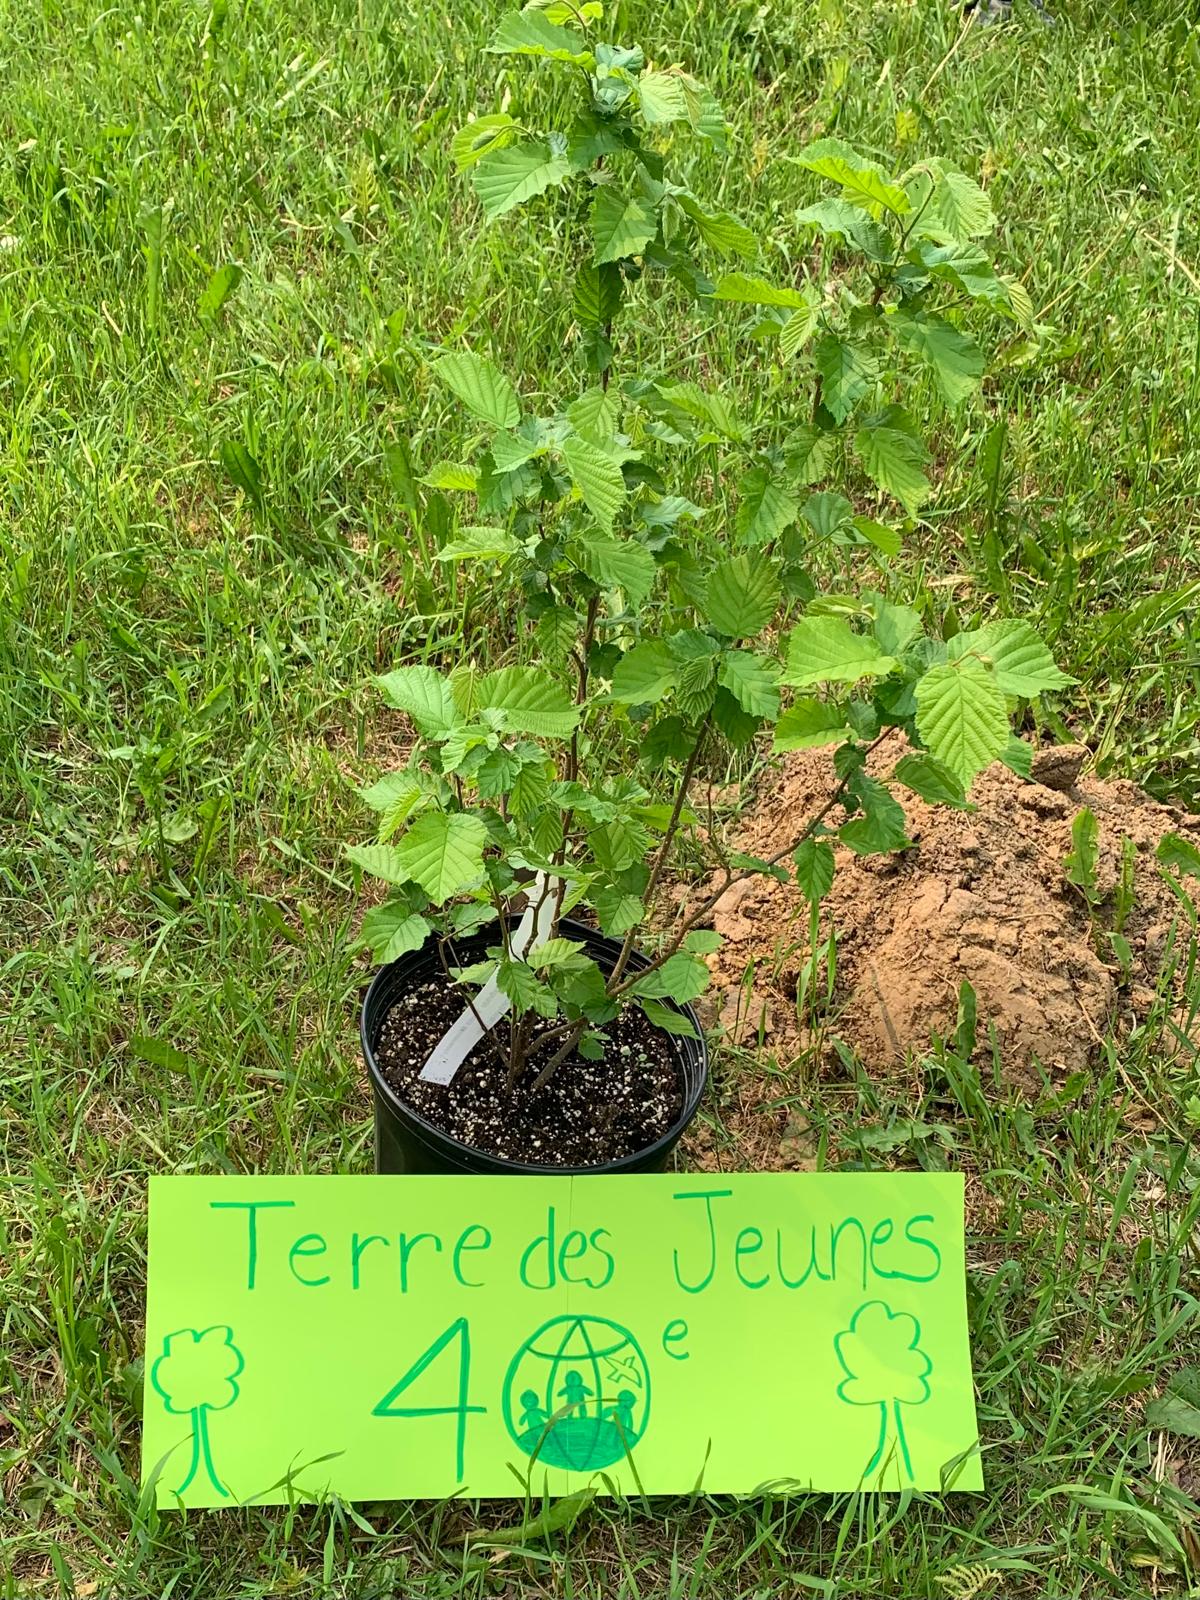 Terre des Jeunes
40e